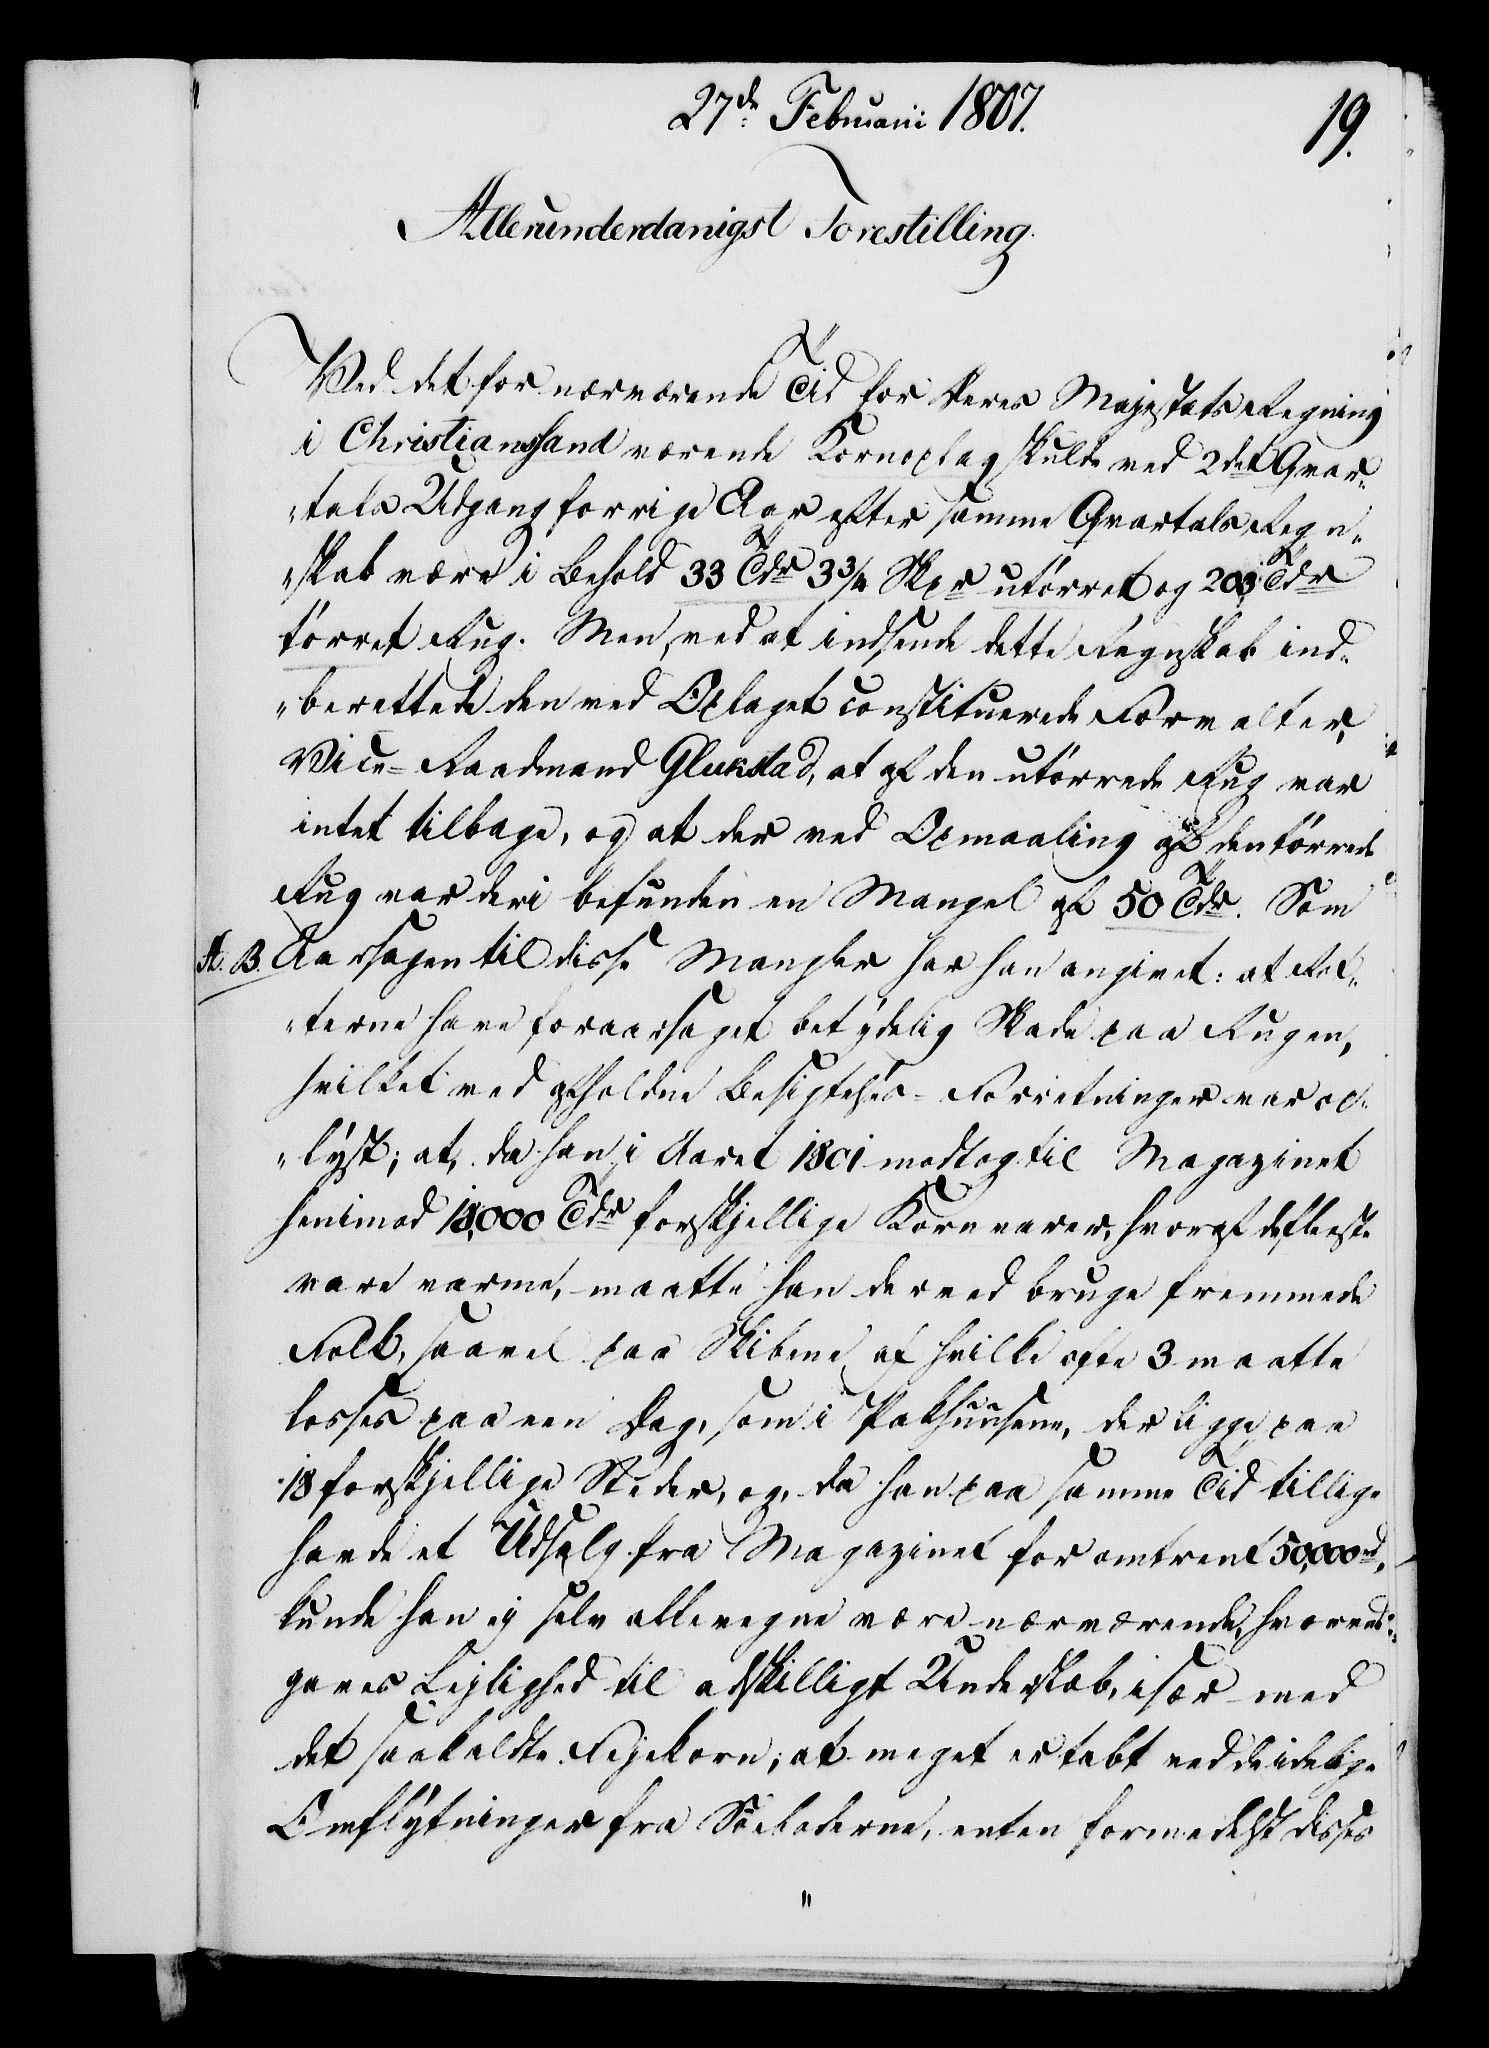 27de Februarii 1807.
19.
Allerunderdanigst Forestilling.
Ved det for nærværende Tid for Deres Majestæts Regning
i Christianssand værende Kornoplag skulde ved 2det Qvar„
„tals Udgang forrige Aar efter samme Qvartals Regn„
„skab være i Behold 33 Tdr 3¾ Skpr utörret og 203 Tdr
törret Rug. Men, ved at indsende dette Regnskab ind„
„berettede den ved Oplaget constituerede Forvalter,
Vice-Raadmand Glukstad, at af den utörrede Rug var
intet tilbage, og at der ved Opmaaling af den törrede
Rug var deri befunden en Mangel af 50 Tdr. Som
A. B. Aarsagen til disse Mangler har han angivet: at Rot„
„terne have foraarsaget betydelig Skade paa Rugen,
hvilket ved afholdne Besigtelses-Forretninger var op„
„lyst; at, da han i Aaret 1801 modtog til Magazinet
henimod 18,000 Tdr forskjellige Kornvarer, hvoraf de fleeste
vare varme, maatte han derved bruge fremmede
Folk, saavel paa Skibene, af hvilke ofte 3 maatte
losses paa een Dag, som i Pakhuusene, der ligge paa
18 forskjellige Steder, og, da han paa samme Tid tillige
havde et Udsalg fra Magazinet for omtrent 50,000 rd,
kunde han ej selv allevegne være nærværende, hvorved
gaves Lejlighed til adskilligt Underslæb, især med
det saakaldte Fejekorn; at meget er tabt ved de idelige
Omflytninger fra Söeboderne, enten formedelst disses
"